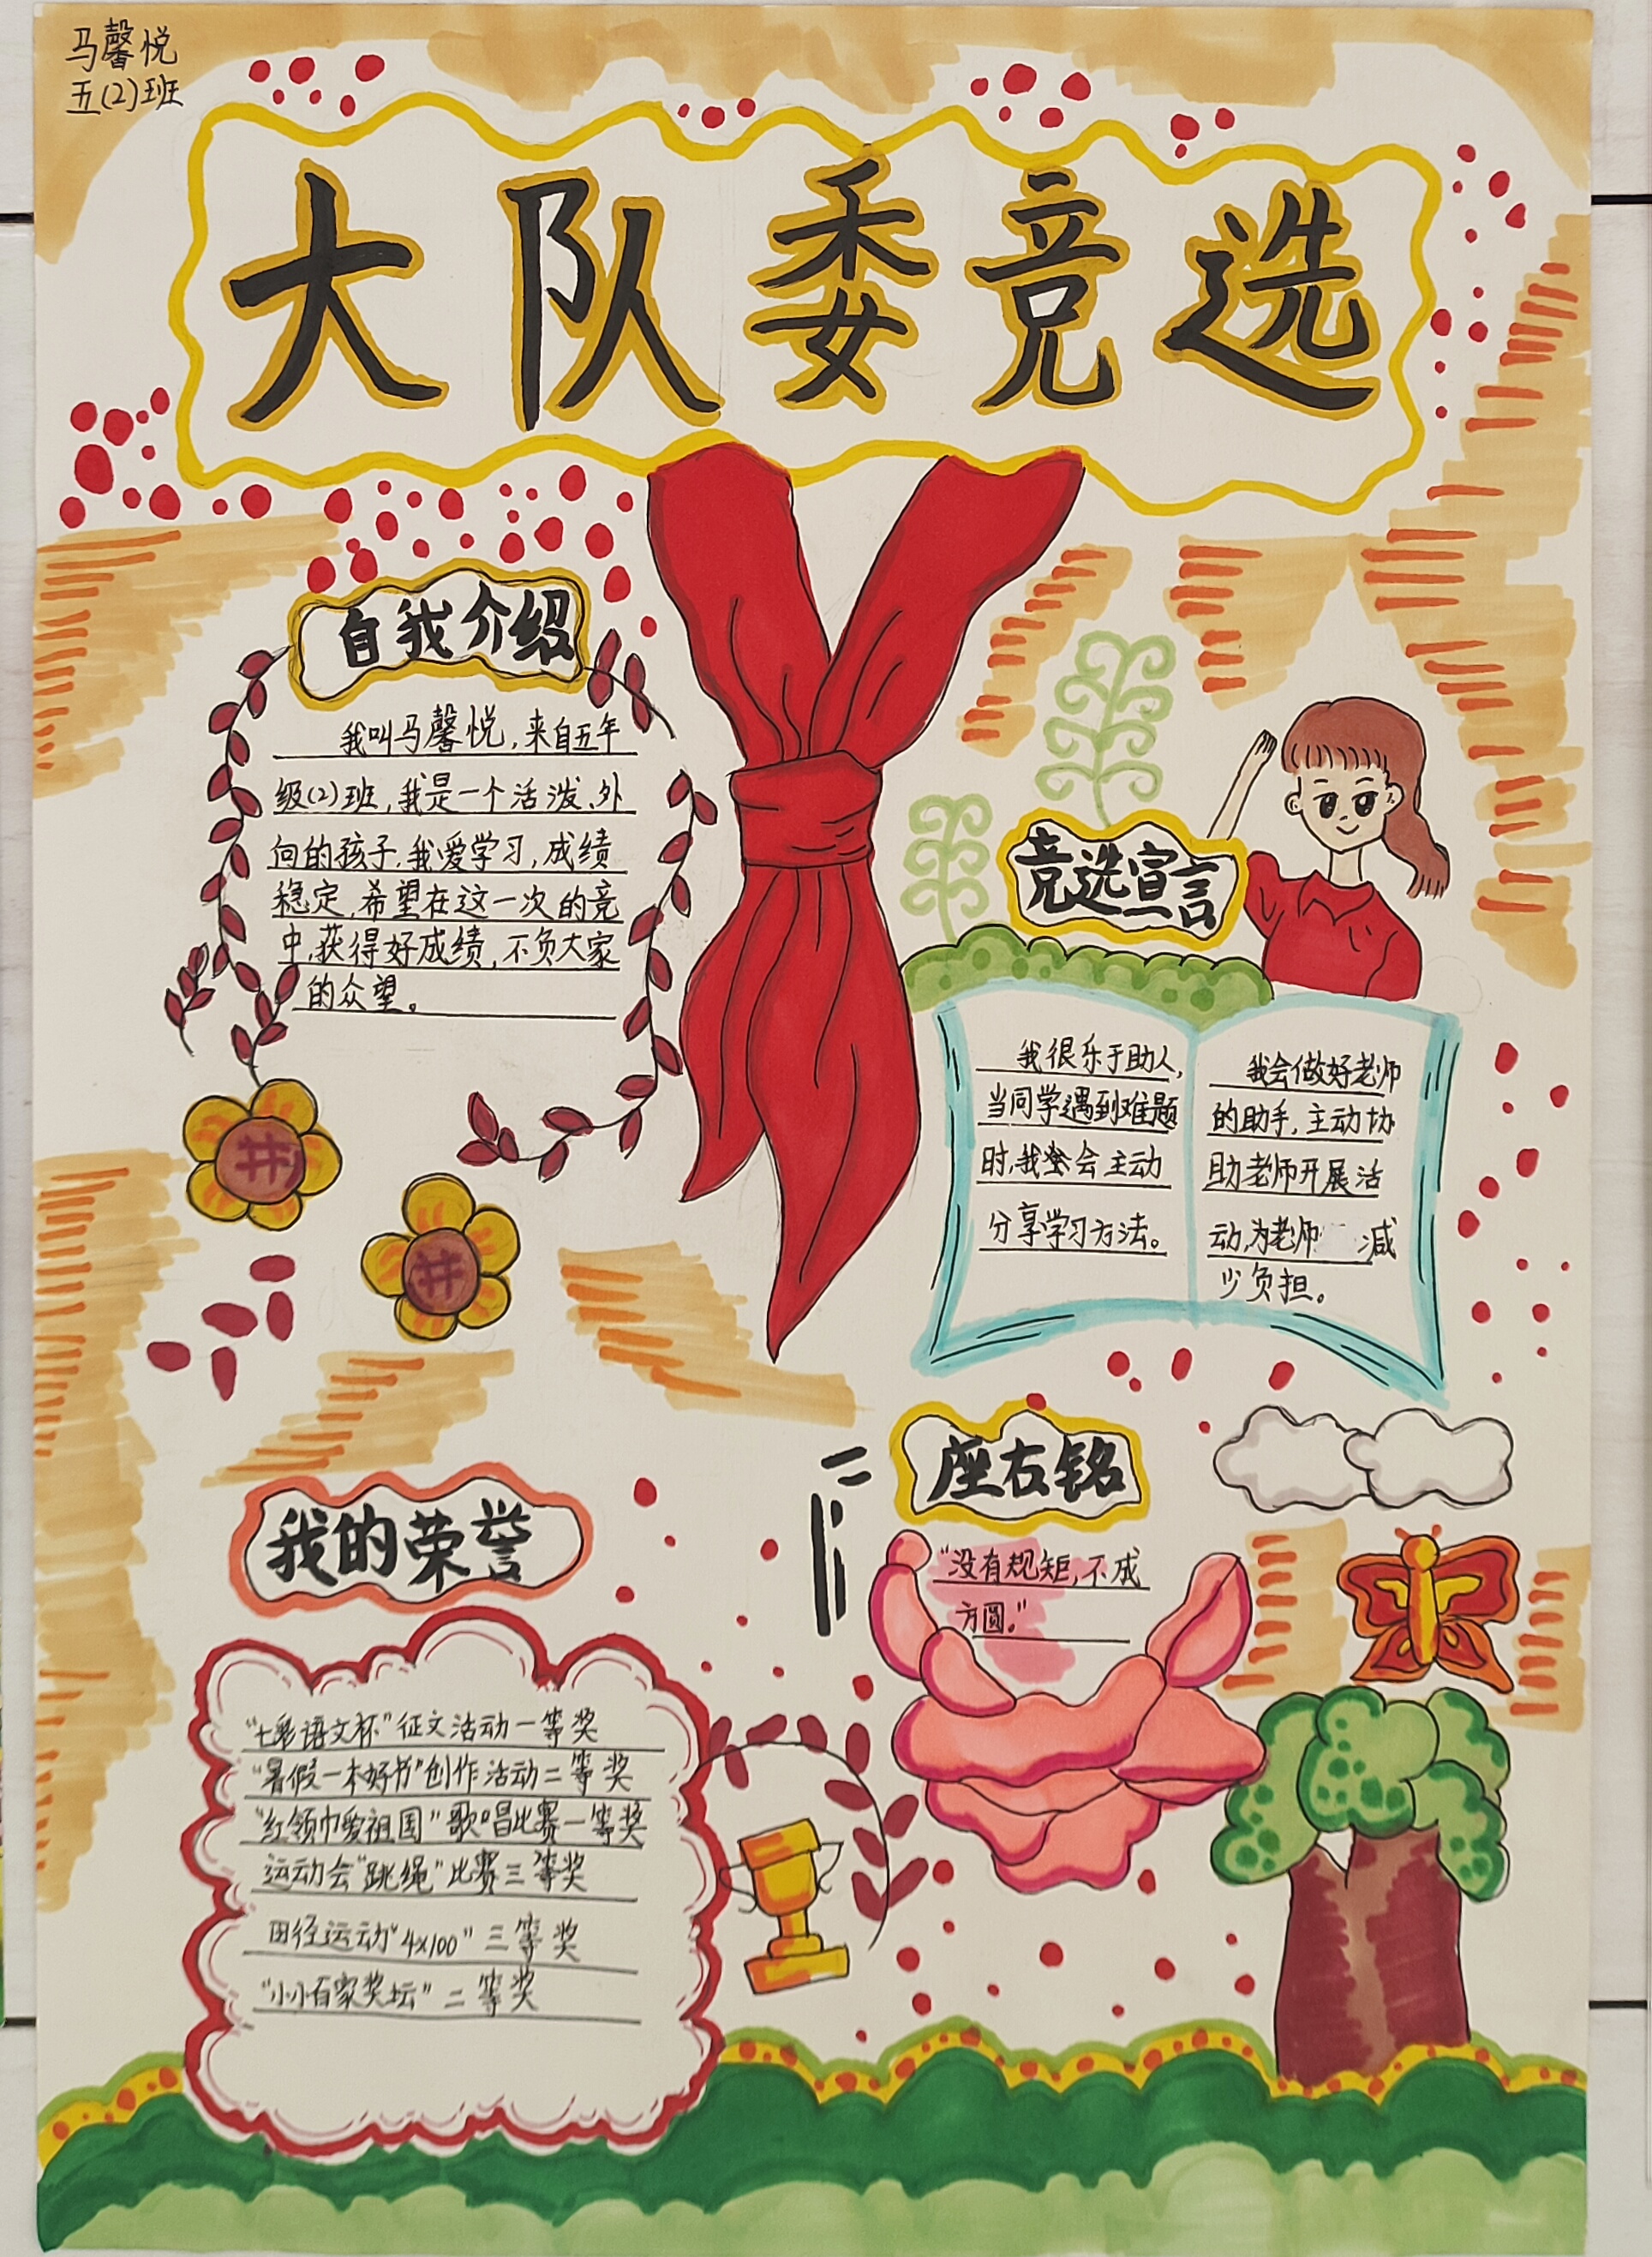 马馨悦
五(2)班
大队委竞选
自我介绍
我叫马馨悦,来自五年
级(2)班,我是一个活泼、外
向的孩子,我爱学习,成绩
稳定,希望在这一次的竞
中,获得好成绩,不负大家
的众望。
竞选宣言
我很乐于助人,
当同学遇到难题
时,我会主动
分享学习方法。
我会做好老师
的助手,主动协
助老师开展活
动,为老师 减
少负担。
座右铭
“没有规矩,不成
方圆。”
我的荣誉
“七彩语文杯”征文活动一等奖
“暑假一本好书”创作活动二等奖
“红领巾爱祖国”歌唱比赛一等奖
运动会“跳绳”比赛三等奖
田径运动“4x100”三等奖
“小小百家奖坛”二等奖